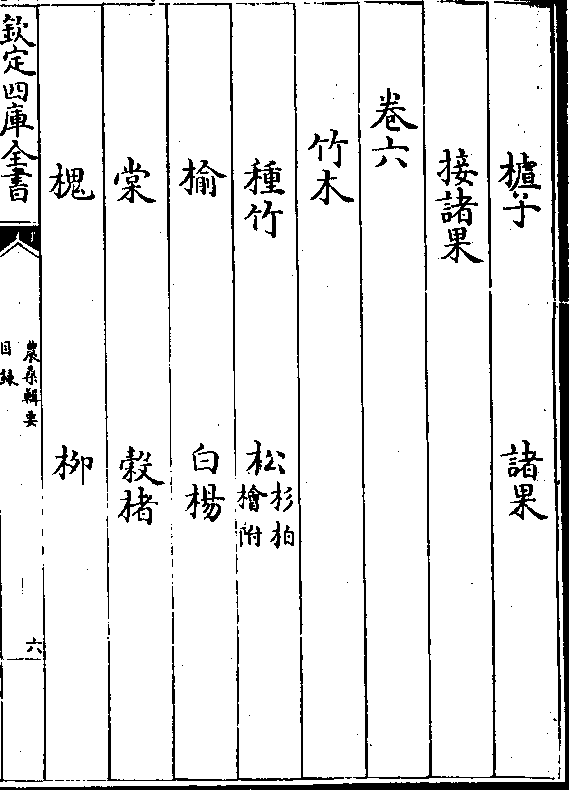 樝子　諸果
接諸果
卷六
竹木
種竹　松杉柏檜附
榆　白楊
棠　榖楮
槐　柳
欽定四庫全書
農桑輯要
目錄
六